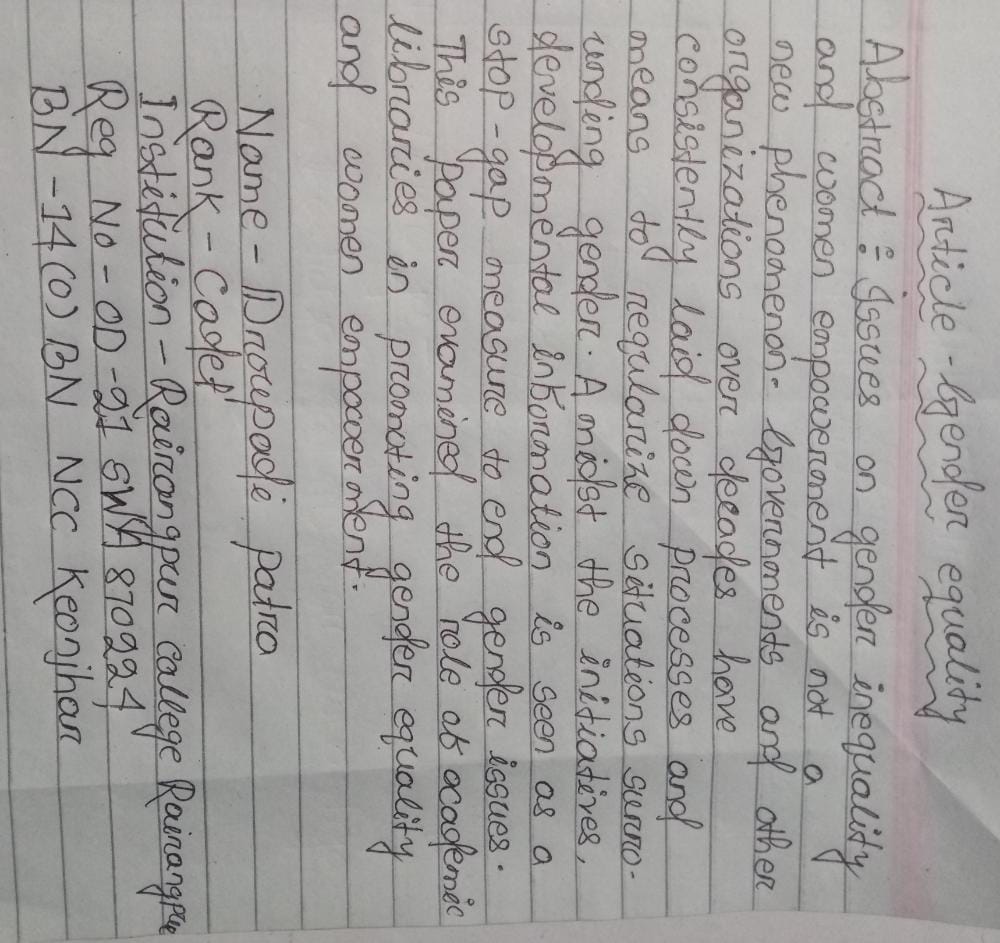 Article - Gender equality
Abstract : Issues on gender inequality
and women empowerment is not a
new phenomenon. Governments and other
organizations over decades have
consistently laid down processes and
means to regularize situations surro-
unding gender. Amidst the initiatives,
developmental information is seen as a
stop-gap measure to end gender issues.
This paper examined the role of academic
libraries in promoting gender equality
and women empowerment.
Name - Droupadi patra
Rank - Cadet
Institution - Rairangpur college Rairangpur
Reg No - OD-21 SWA 870224
BN - 14(O) BN NCC Keonjhar